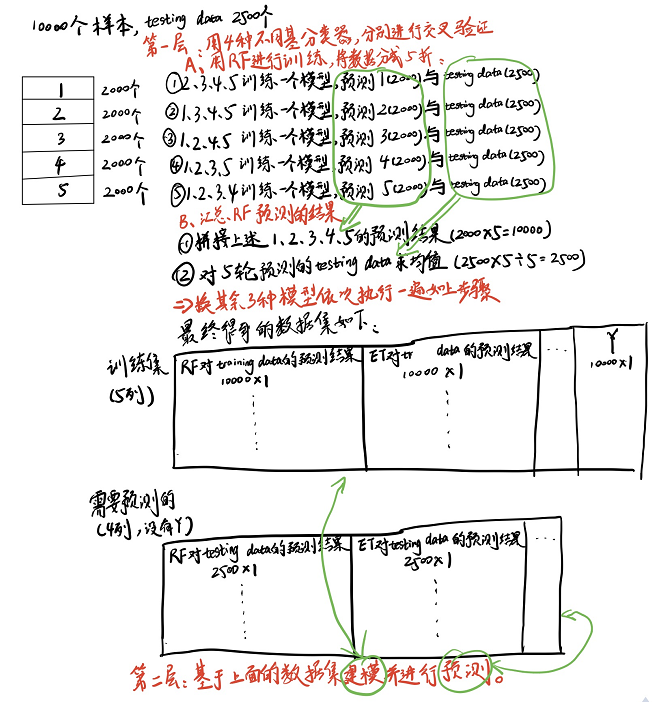 10000个样本, testing data 2500个
第一层: 用4种不同基分类器, 分别进行交叉验证
A、用RF进行训练, 将数据分成5折:
1 2000个 ①2.3.4.5训练一个模型, 预测1(2000)与testing data(2500)
2 2000个 ②1.3.4.5训练一个模型, 预测2(2000)与testing data(2500)
3 2000个 ③1.2.4.5训练一个模型, 预测3(2000)与testing data(2500)
4 2000个 ④1.2.3.5训练一个模型, 预测4(2000)与testing data(2500)
5 2000个 ⑤1.2.3.4训练一个模型, 预测5(2000)与testing data(2500)
B、汇总RF预测的结果
①拼接上述1、2、3、4、5的预测结果(2000×5=10000)
②对5轮预测的testing data求均值(2500×5÷5=2500)
=>换其余3种模型依次执行一遍如上步骤
最终得到的数据集如下:
训练集
(5列)
RF对training data的预测结果
10000×1
ET对tr data的预测结果
10000×1
...
Y
10000×1
需要预测的
(4列, 没有Y)
RF对testing data的预测结果
2500×1
ET对testing data的预测结果
2500×1
...
第二层: 基于上面的数据集建模并进行预测。